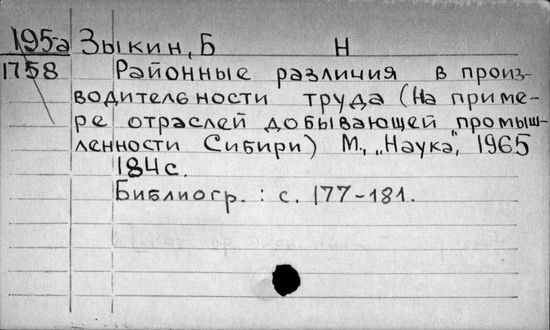 195а Зыкин, Б Н
1758 Районные различия в произ-
водительности труда (На приме-
ре отраслей добывающей промыш-
ленности Сибири) М., „Наука", 1965
184с.
Библиогр. : с. 177-181.